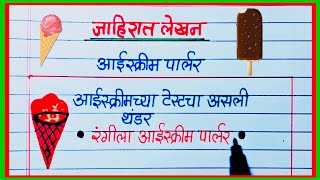 जाहिरात लेखन
आईस्क्रीम पार्लर
आईस्क्रीमच्या टेस्टचा असली
थंडर
• रंगीला आईस्क्रीम पार्लर •